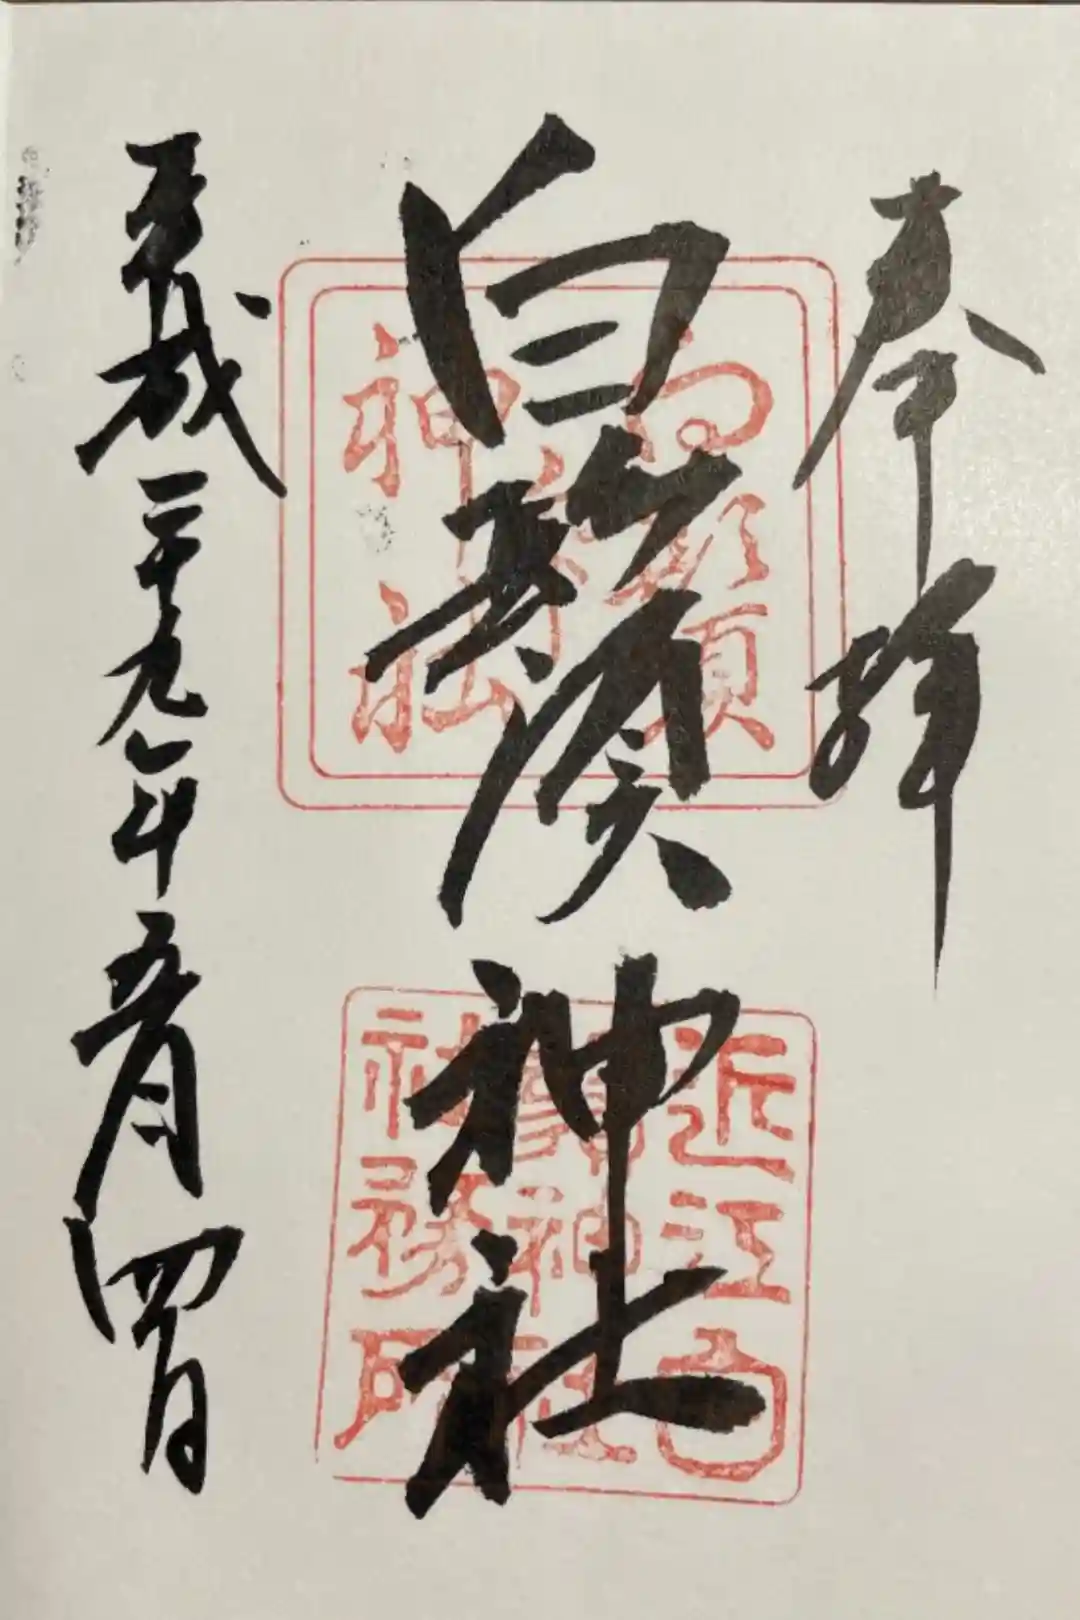 奉拝
白鬚神社
平成二十九年五月四日
白鬚
神社
近江白
鬚神社
社務所